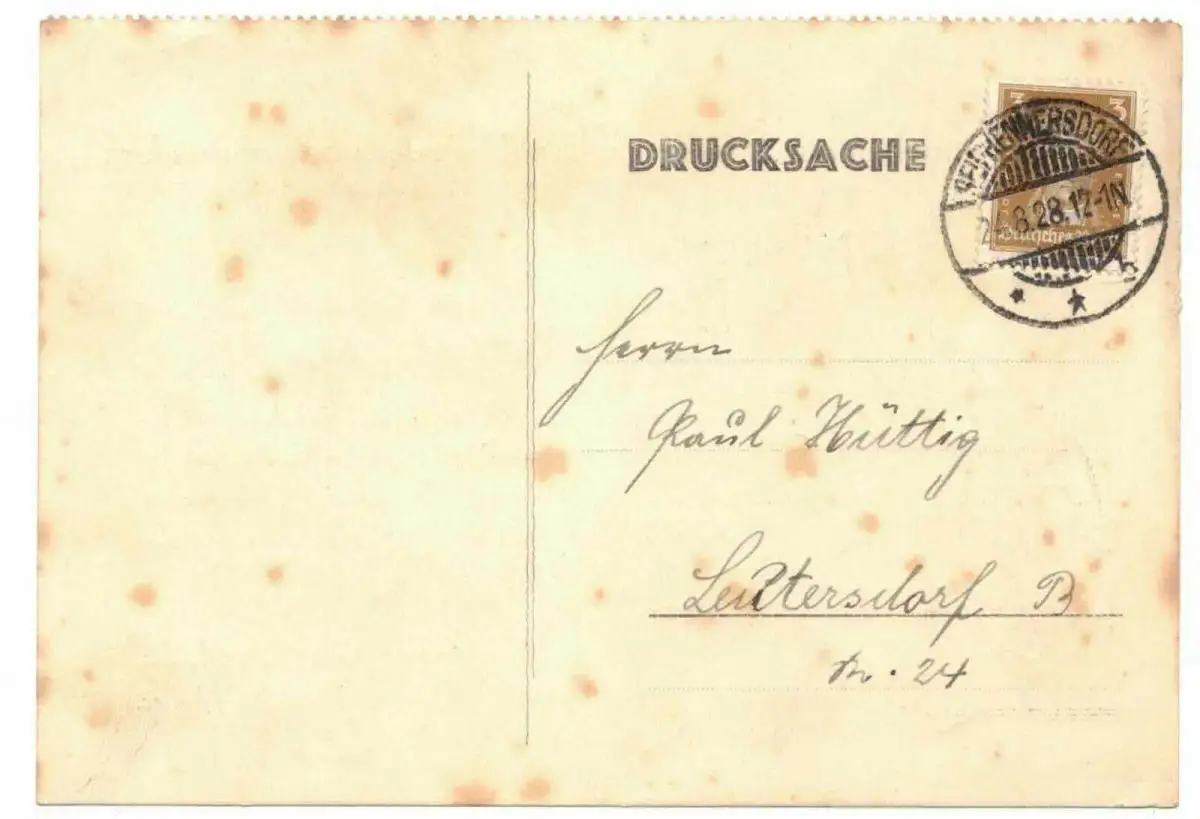 DRUCKSACHE
3 3
SEIFHENNERSDORF
24.8.28.12-1N
Deutsches Reich
b
Herrn
Paul Hüttig
Leutersdorf B
Nr. 24